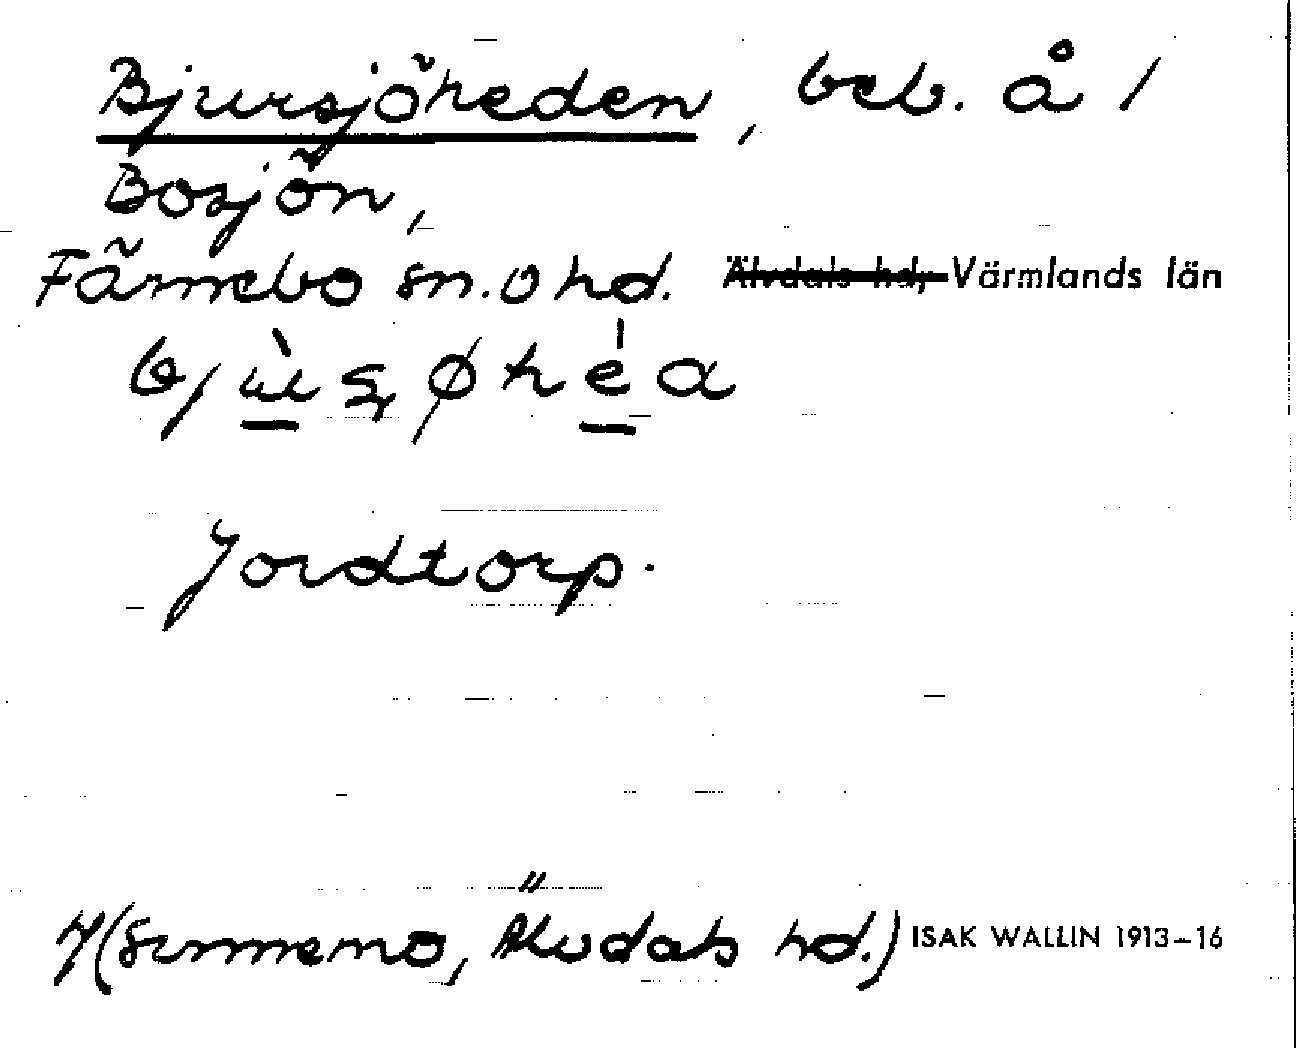 Bjursjöheden, beb. å 1
Bosjön,
Färnebo sn. o hd. Älvdals hd, Värmlands län
Jordtorp.
(Sunnemo, Älvdals hd.) ISAK WALLIN 1913–16